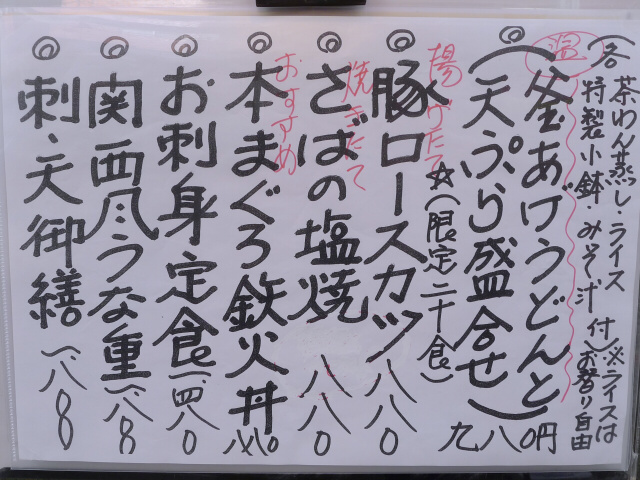 (各 茶わん蒸し・ライス
特製小鉢 みそ汁 付)
※ライスは
お替り自由
温
◎釜あげうどんと
(天ぷら盛合せ) 九八〇円
☆(限定二十食)
揚げたて
◎豚ロースカツ 八八〇
焼きたて
◎さばの塩焼 八八〇
おすすめ
◎本まぐろ鉄火丼
◎お刺身定食 一、四八〇
◎関西風うな重
◎刺・天御繕